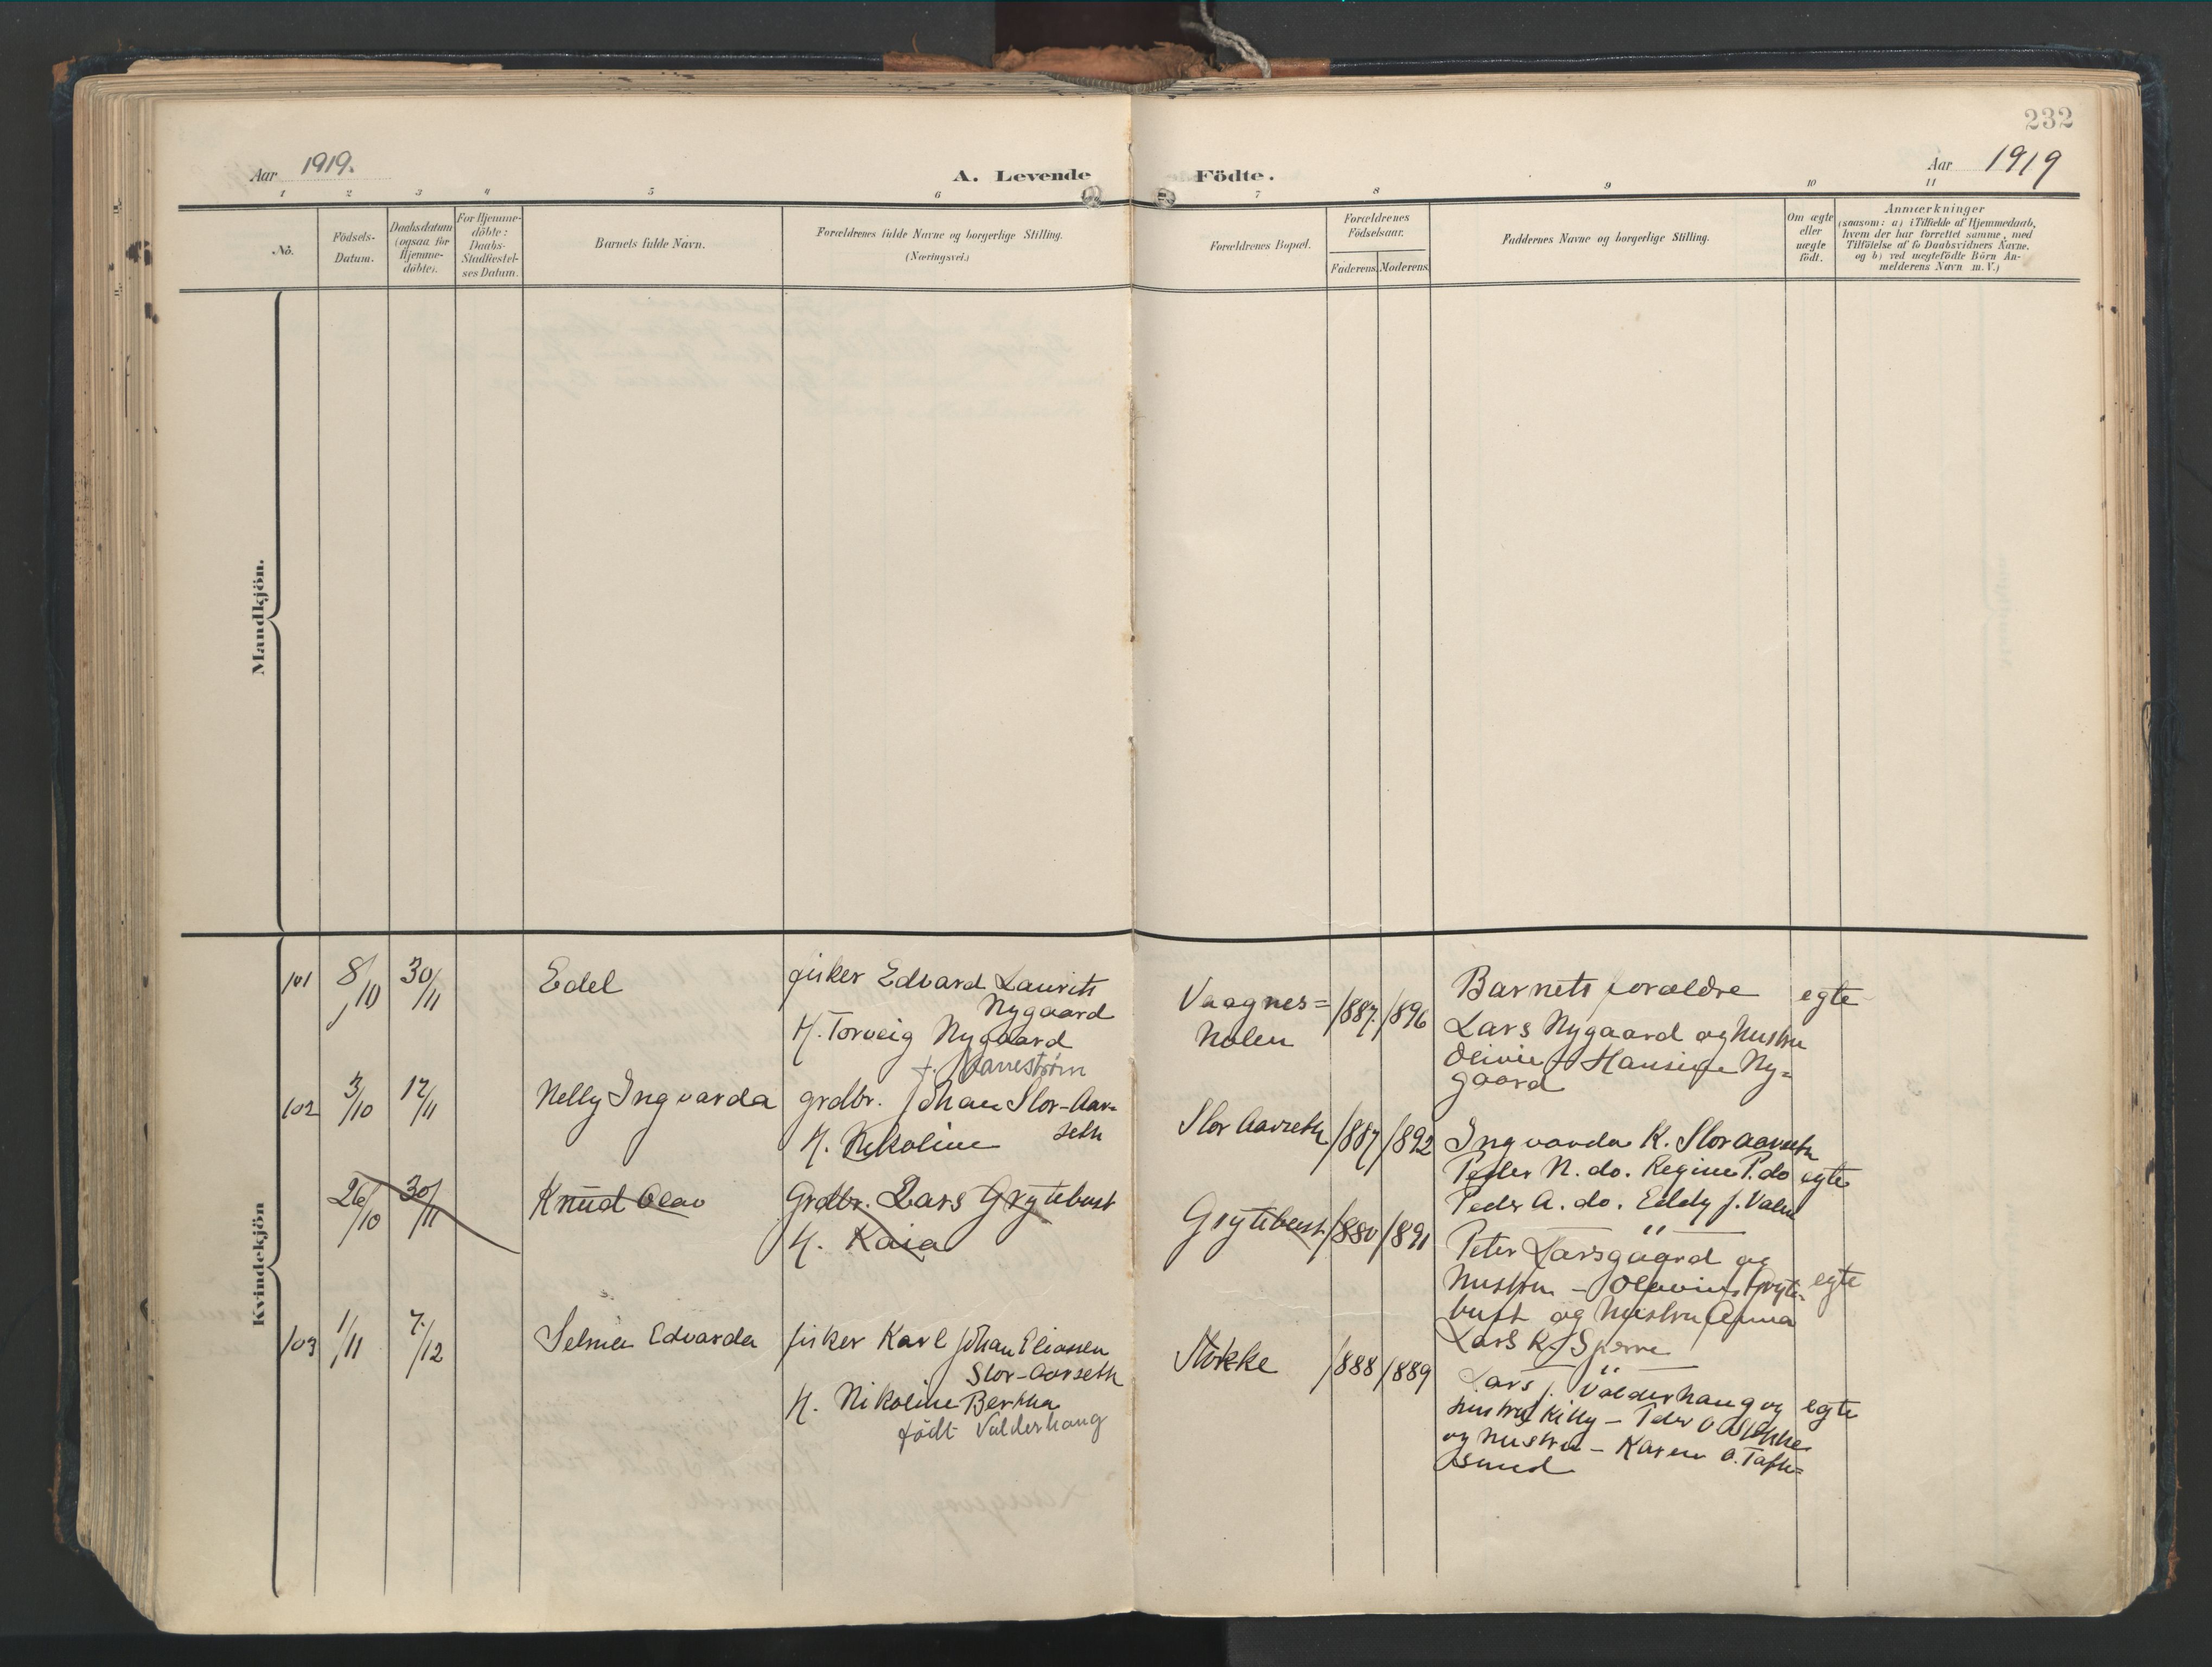 232
Aar 1919.
A. Levende Födte.
Aar 1919
1 2 3 4 5 6 7 8 9 10 11
No.
Födsels-
Datum.
Daabsdatum
(ogsaa for
Hjemme-
döbte).
For Hjemme-
döbte:
Daabs-
Stadfæstel-
ses Datum.
Barnets fulde Navn.
Forældrenes fulde Navne og borgerlige Stilling.
(Næringsvei.)
Forældrenes Bopæl.
Forældrenes
Födselsaar.
Faderens. Moderens.
Faddernes Navne og borgerlige Stilling.
Om ægte
eller
uægte
født.
Anmærkninger
(saasom: a) i Tilfælde af Hjemmedaab,
hvem der har forrettet samme, med
Tilföielse af to Daabsvidners Navne.
og b) ved uægtefödte Börn An-
melderens Navn m. V.)
Mandkjön.
Kvindekjön
101
8/10
30/11
Edel
fisker Edvard Laurits
Nygaard
H. Torveig Nygaard
f. Harrestrøm
Vaagnes=
holen
1887. 1896
Barnets forældre
Lars Nygaard og hustru
Olivie – Hansine Ny=
gaard
egte
102
3/10
17/11
Nelly Ingvarda
grdbr. Johan Stor-Aar-
seth
H. Nikoline
Stor Aarseth
1887 1892
Ingvarda K. Stor aarseth
Peder N. do. Regine P. do
Peder A. do. Eddy J. Valde
egte
26/10
30/11
Knud Olav
Grdbr. Lars Grytebust
H. Kaia
Grytebust
1880 1891
— " —
Peter Larsgaard og
hustru – Olavius Gryte-
bust og hustru Anna
Lars K. Sperre
egte
103
1/11
7./12
Selma Edvarda
fisker Karl Johan Eliassen
Stor-Aarseth
H. Nikoline Bertha
født Valderhaug
Stokke
1888 1889
— " —
Lars J. Valderhaug og
hustru Killy – Peder O. Stokke
og hustru – Karen O. Tafte=
sund
egte